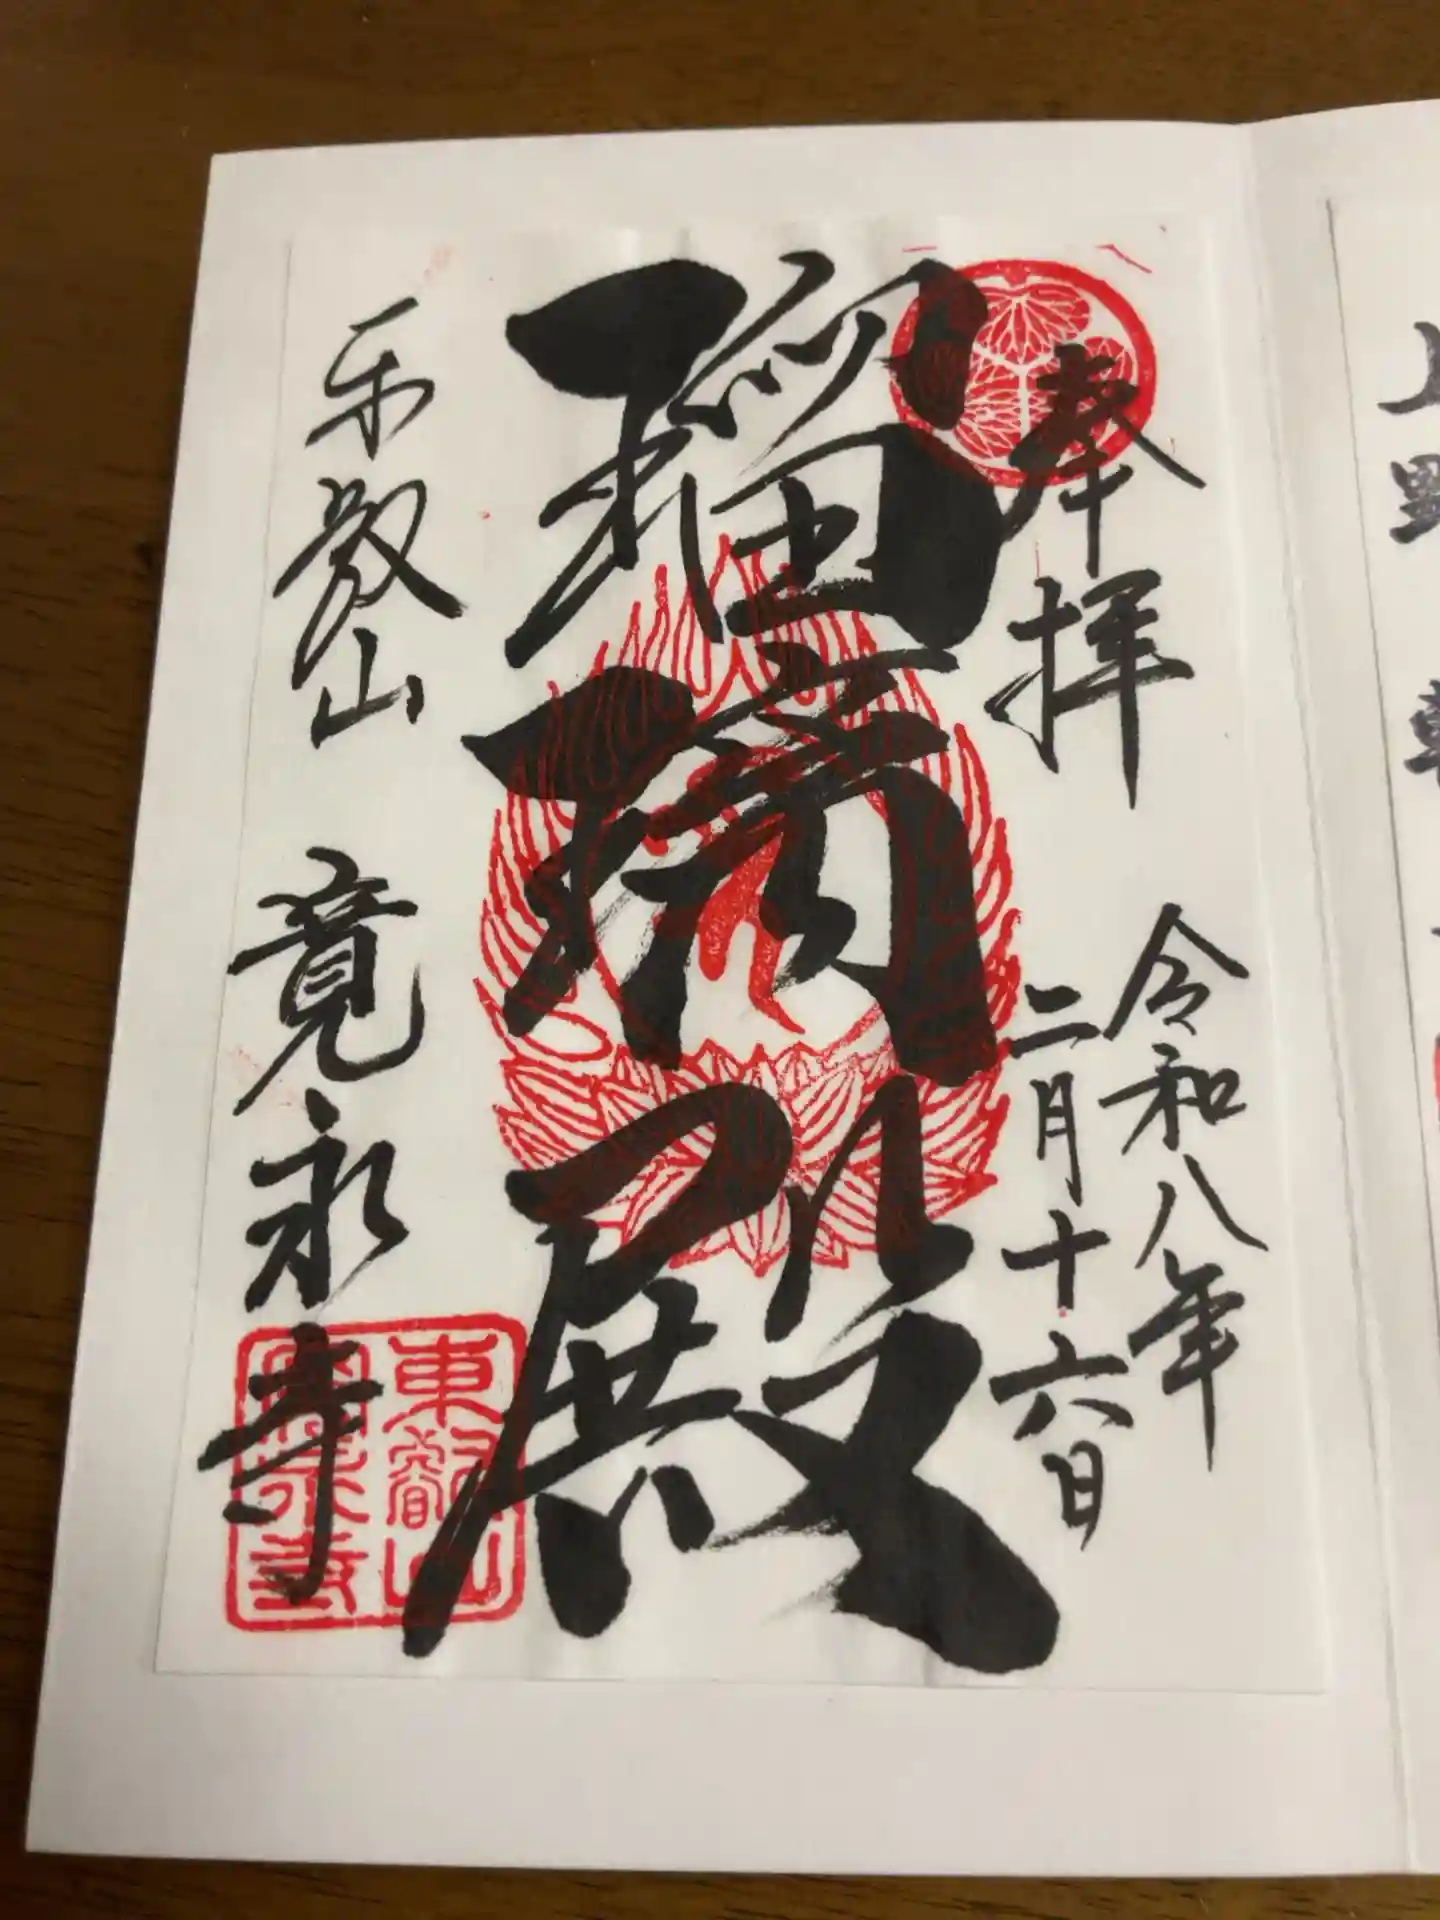 奉拝
令和八年
二月十六日
瑠璃殿
東叡山 寛永寺
東叡山
寛永寺